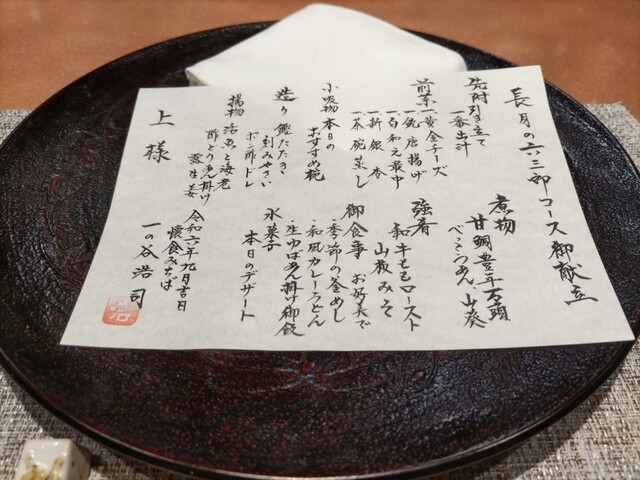 長月の六三郎コース御献立
先附 引き立て
一番出汁
前菜 一黄金チーズ
一鱧唐揚げ
一白和え最中
一新銀杏
一茶碗蒸し
小吸物 本日の
おすすめ椀
造り 鰹たたき
刻みやさい
ポン酢ドレ
揚物 活魚と海老
酢どり見掛け
露生姜
煮物
甘鯛豊年万頭
べっこうあん、山葵
強肴
和牛ももロースト
山椒みそ
御食事 お好みで
・季節の釜めし
・和風カレーうどん
・生ゆばあん掛け御飯
水菓子
本日のデザート
上様
令和六年九月吉日
懐食みちば
一の谷浩司